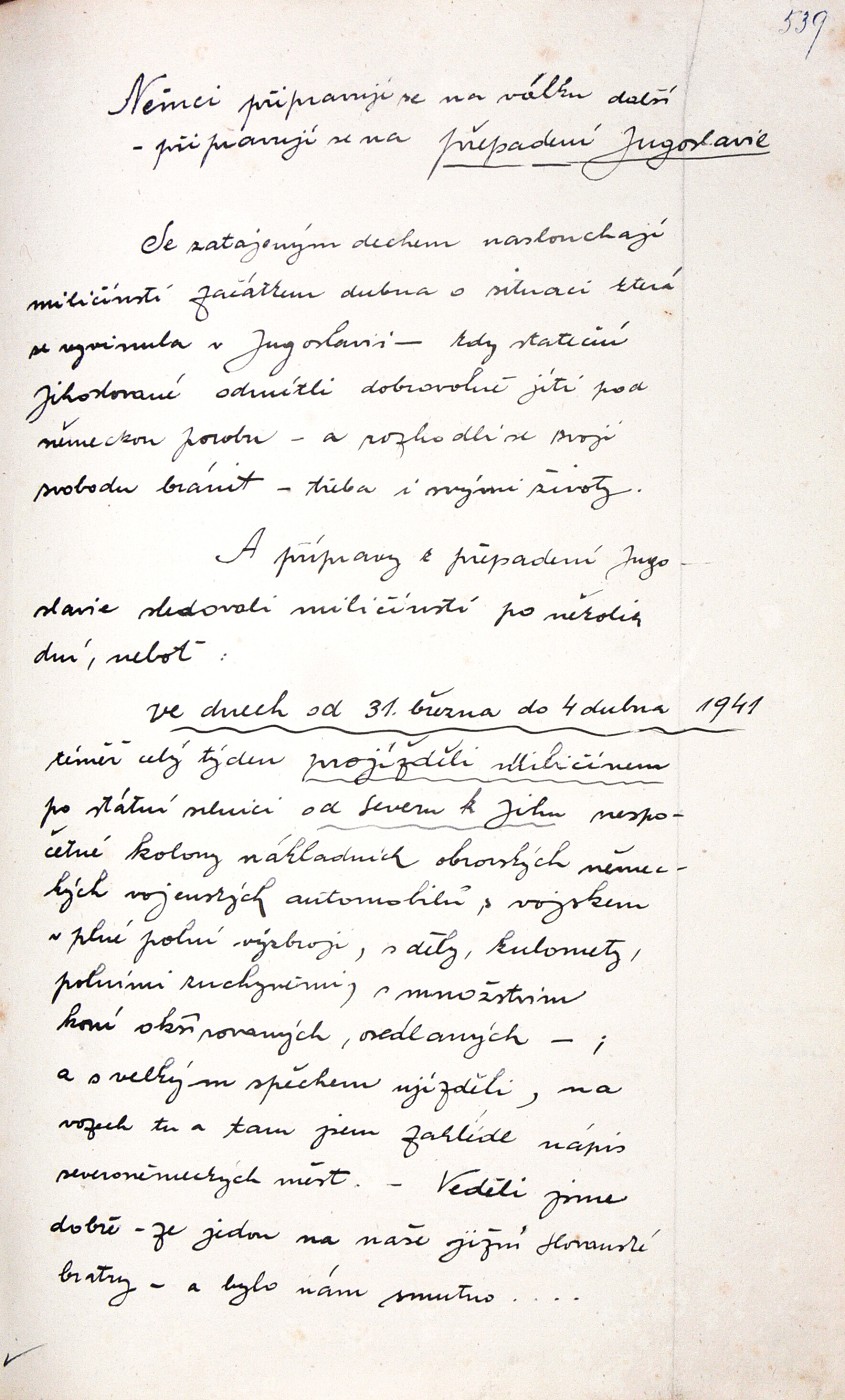 539
Němci připravují se na válku další
- připravují se na přepadení Jugoslavie
Se zatajeným dechem naslouchají
miličínští začátkem dubna o situaci která
se vyvinula v Jugoslavii — kdy stateční
Jihoslované odmítli dobrovolně jíti pod
německou porobu - a rozhodli se svoji
svobodu bránit - třeba i svými životy.
A přípravy k přepadení Jugo-
slavie sledovali miličínstí po několik
dní, neboť :
ve dnech od 31. března do 4 dubna 1941
téměř celý týden projížděli Miličínem
po státní silnici od severu k jihu nespo-
četné kolony nákladních obrovských němec-
kých vojenských automobilů, s vojskem
v plné polní výzbroji, s děly, kulomety,
polními kuchyněmi, s množstvím
koní okšírovaných, osedlaných — ;
a s velkým spěchem ujížděli, na
vozech tu a tam jsem zahlédl nápis
severoněmeckých měst. - Věděli jsme
dobře - že jedou na naše jižní slovanské
bratry - a bylo nám smutno . . . .